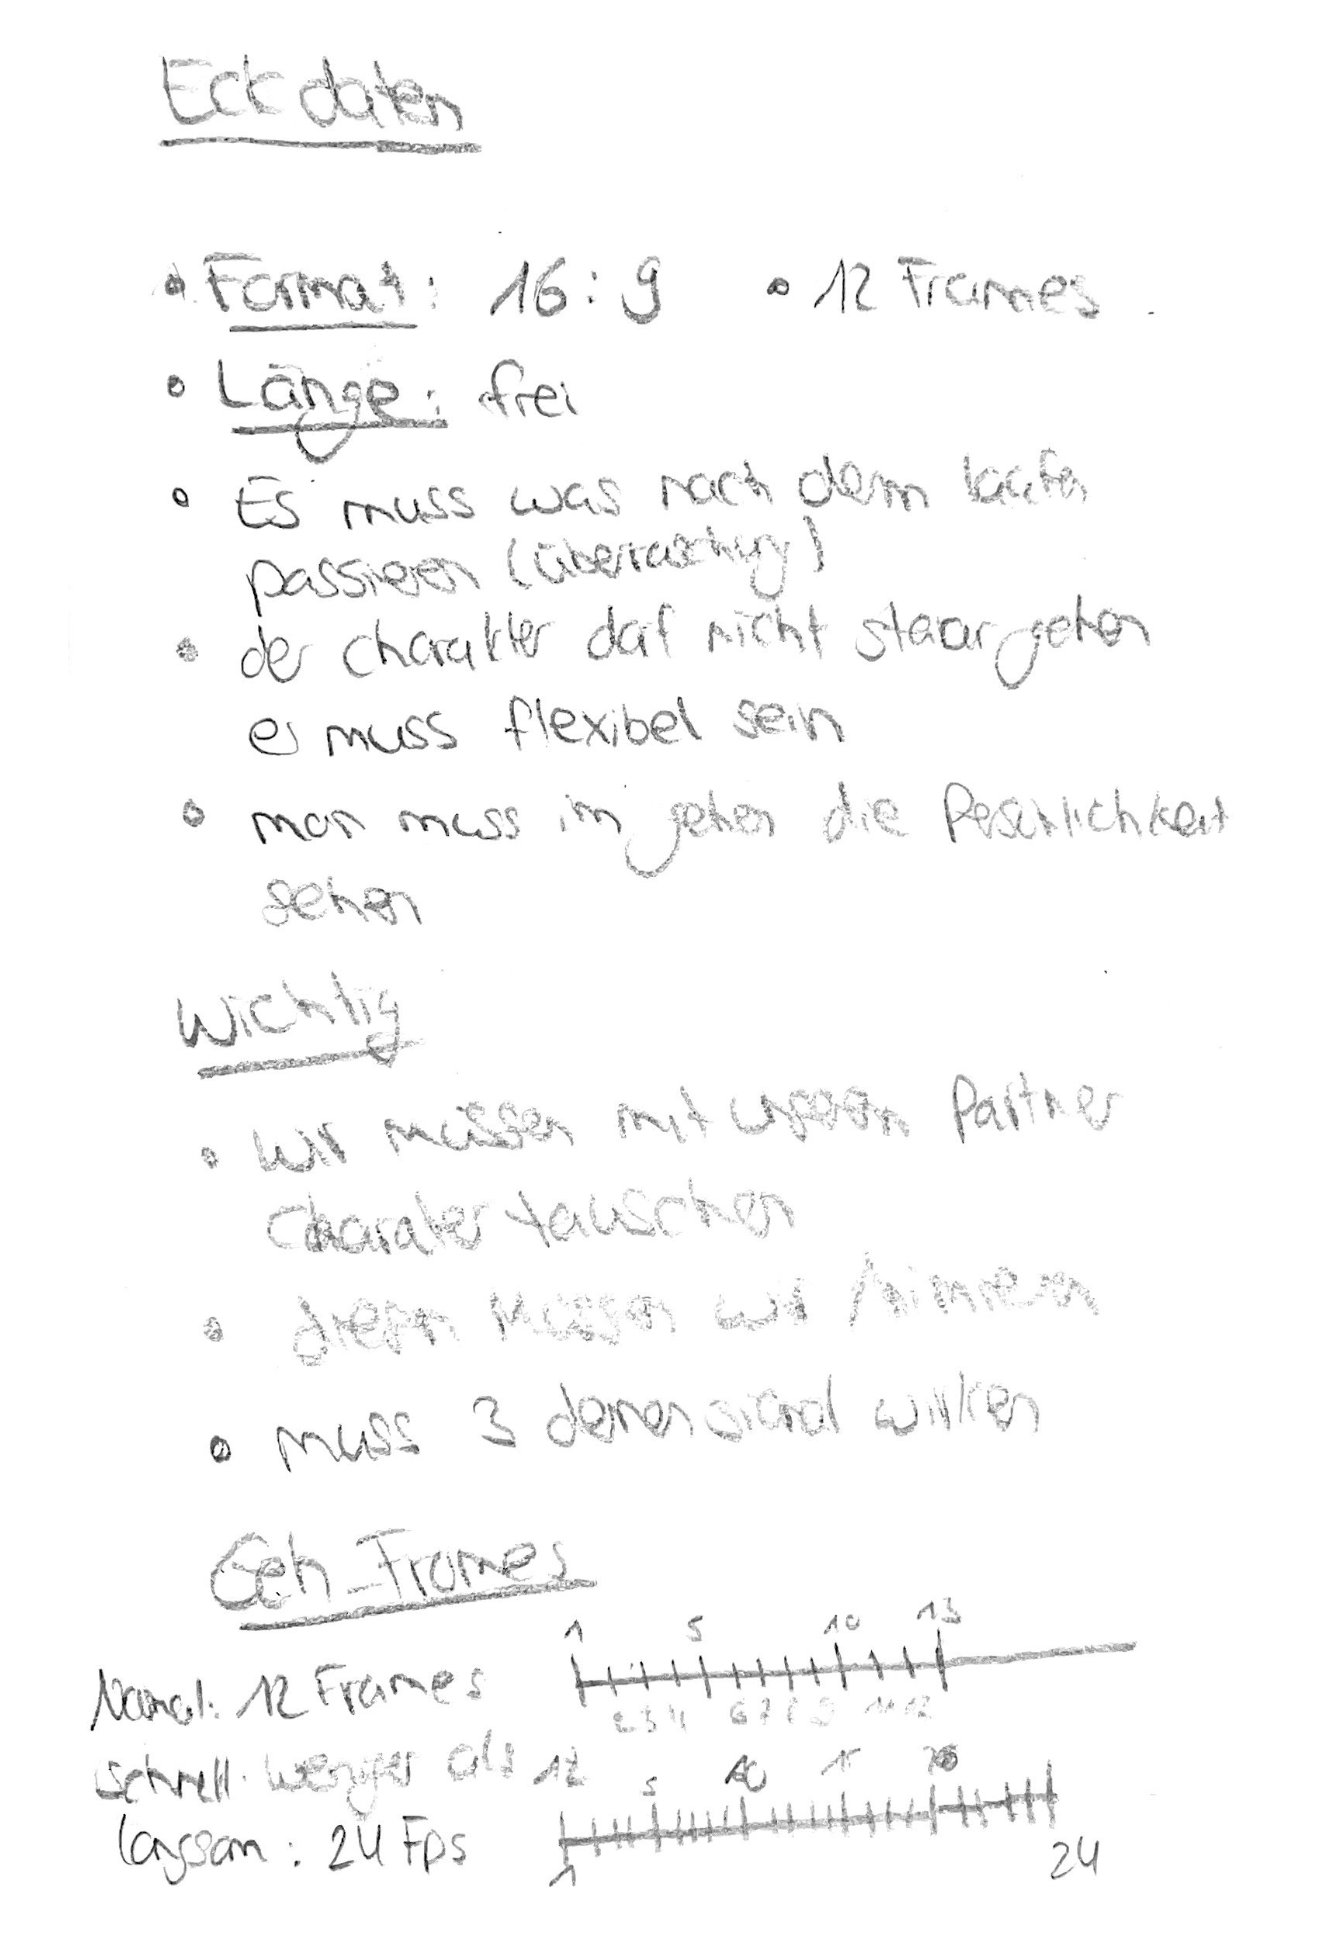 Eckdaten
• Format: 16:9 • 12 Frames
• Länge: frei
• Es muss was nach dem laufen
passieren (überraschung)
• der charakter daf nicht staar gehen
es muss flexibel sein
• man muss im gehen die Persönlichkeit
sehen
Wichtig
• wir müssen mit unseren Partner
Charakter tauschen
• müssen wir Animieren
• muss 3 demensional wirken
Geh_Frames
1 5 10 13
Normal: 12 Frames
2 3 4 6 7 8 9 11 12
schnell: weniger als 12
5 10 15 20
langsam: 24 Fps
1 24